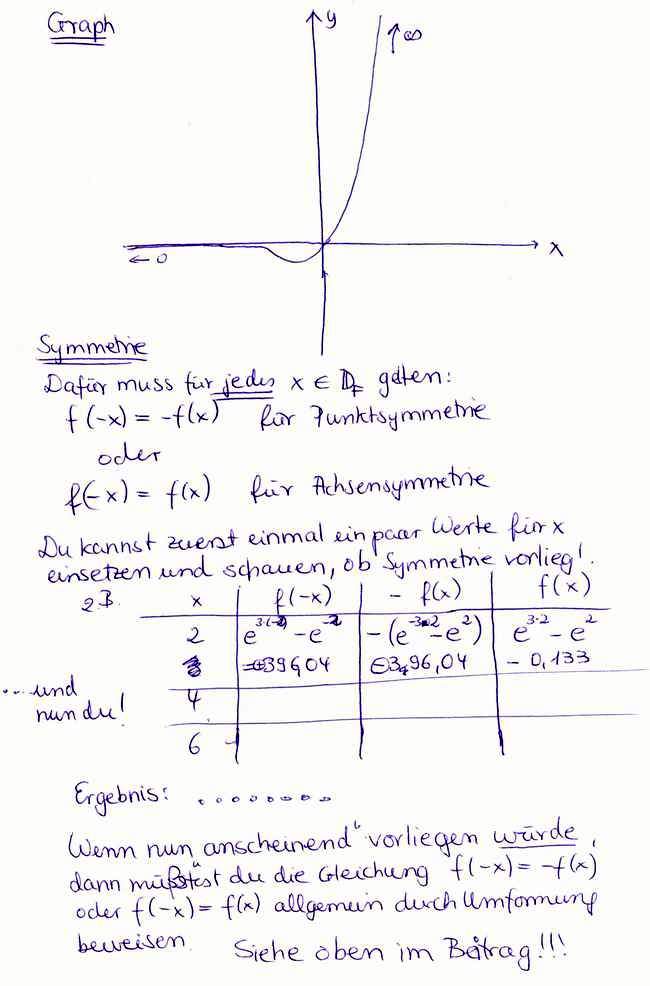 Graph
y
↑ ∞
x
← 0
Symmetrie
Dafür muss für jedes x ∈ D_f gelten:
f(-x) = -f(x) für Punktsymmetrie
oder
f(-x) = f(x) für Achsensymmetrie
Du kannst zuerst einmal ein paar Werte für x
einsetzen und schauen, ob Symmetrie vorliegt.
z.B. x f(-x) - f(x) f(x)
2 e^{3·(-2)} - e^{-2} -(e^{-3·2} - e^2) e^{3·2} - e^2
396,04 396,04 - 0,133
...und
nun du!
4
6
Ergebnis: ........
Wenn nun "anscheinend" vorliegen würde,
dann müßtest du die Gleichung f(-x) = -f(x)
oder f(-x) = f(x) allgemein durch Umformung
beweisen. Siehe oben im Beitrag!!!